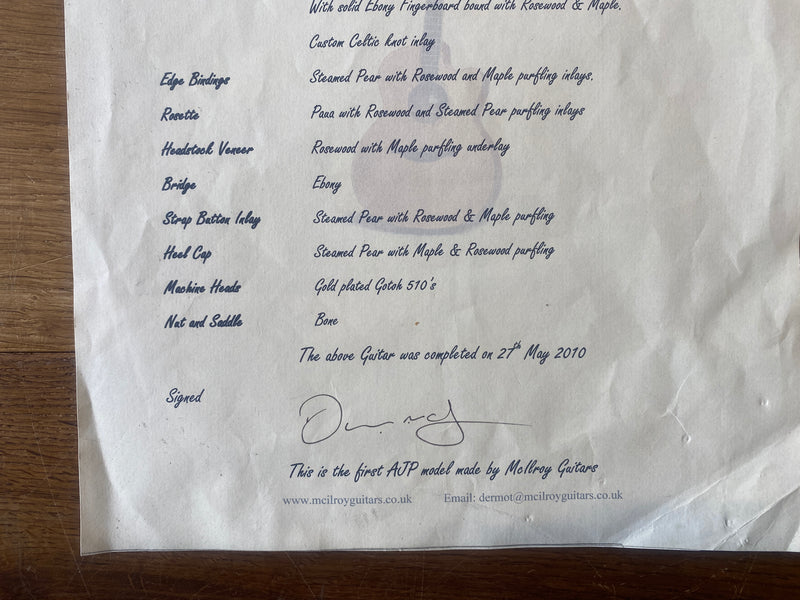 With solid Ebony Fingerboard bound with Rosewood & Maple.
Custom Celtic knot inlay
Edge Bindings Steamed Pear with Rosewood and Maple purfling inlays.
Rosette Paua with Rosewood and Steamed Pear purfling inlays
Headstock Veneer Rosewood with Maple purfling underlay
Bridge Ebony
Strap Button Inlay Steamed Pear with Rosewood & Maple purfling
Heel Cap Steamed Pear with Maple & Rosewood purfling
Machine Heads Gold plated Gotoh 510's
Nut and Saddle Bone
The above Guitar was completed on 27th May 2010
Signed
This is the first AJP model made by McIlroy Guitars
www.mcilroyguitars.co.uk Email: dermot@mcilroyguitars.co.uk